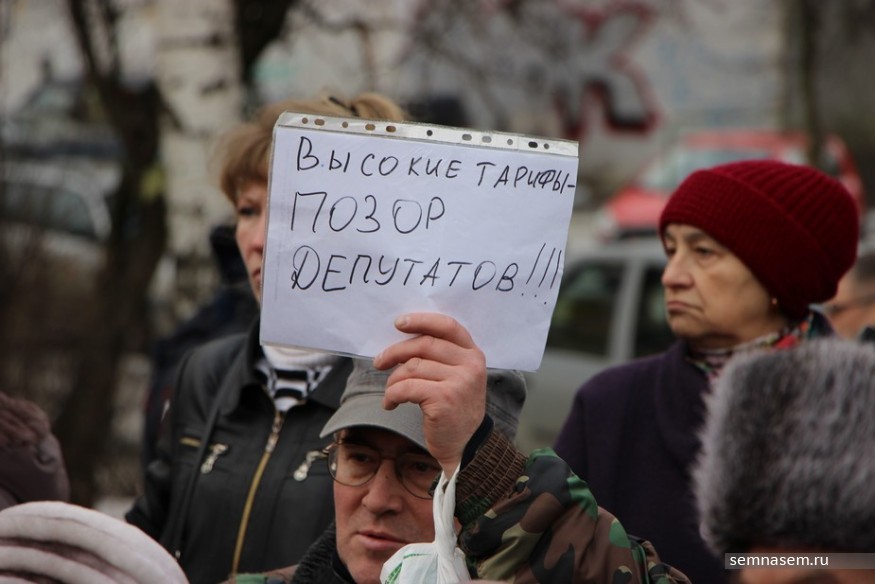 ВЫСОКИЕ ТАРИФЫ-
ПОЗОР
ДЕПУТАТОВ!!!
semnasem.ru